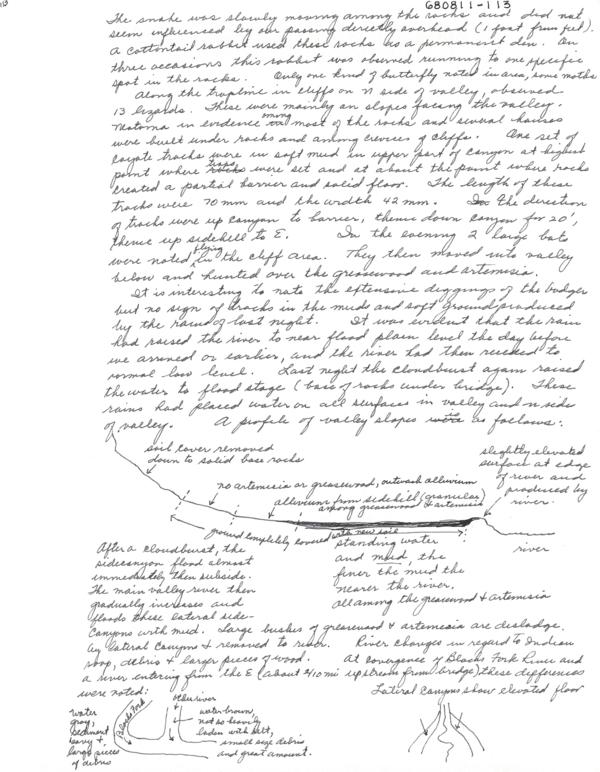 680811-113
The snake was slowly moving among the rocks and did not
seem influenced by our passing directly overhead (1 foot from feet).
A cottontail rabbit used these rocks as a permanent den. On
three occasions this rabbit was observed running to one specific
spot in the rocks. Only one kind of butterfly noted in area, some moths
Along the trapline in cliffs on N side of valley, observed
13 lizards. These were mainly on slopes facing the valley.
Neotoma in evidence among most of the rocks and several houses
were built under rocks and among crevices of cliffs. One set of
coyote tracks were in soft mud in upper part of canyon at highest
point where traps were set and at about the point where rocks
created a partial barrier and solid floor. The length of these
tracks were 70 mm and the width 42 mm. The direction
of tracks were up canyon to barrier, thence down canyon for 20',
thence up sidehill to E. In the evening 2 large bats
were noted flying in the cliff area. They then moved into valley
below and hunted over the greasewood and artemesia.
It is interesting to note the extensive diggings of the badger
but no sign of tracks in the muds and soft ground produced
by the rains of last night. It was evident that the rain
had raised the river to near flood plain level the day before
we arrived or earlier, and the river had then receded to
normal low level. Last night the cloudburst again raised
the water to flood stage (base of rocks under bridge). These
rains had placed water on all surfaces in valley and N side
of valley. A profile of valley slopes as follows:
soil cover removed
down to solid base rocks
slightly elevated
surface at edge
of river and
produced by
river.
no artemisia or greasewood, outwash alluvium
alluvium from sidehill (granular)
among greasewood & artemisia
ground completely covered with new soil
river
After a cloudburst, the
sidecanyon flood almost
immediately then subside.
The main valley river then
gradually increases and
floods these lateral side-
standing water
and mud, the
finer the mud the
nearer the river.
all among the greasewood & artemisia
canyons with mud. Large bushes of greasewood & artemesia are dislodge.
by lateral canyons & removed to river. River changes in regard to Indian
soap, debris & larger pieces of wood. At convergence of Blacks Fork River and
a river entering from the E (about 2/10 mi upstream from bridge) these differences
were noted:
Lateral canyons show elevated floor
other river
Blacks Fork
water
gray,
sediment
heavy &
large pieces
of debris
water brown,
not so heavily
laden with silt,
small size debris
and great amount.